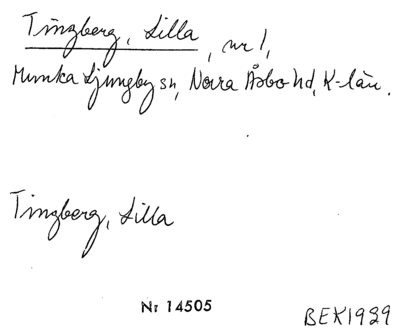 Tingberg, Lilla, nr 1,
Munka Ljungby sn, Norra Åsbo hd, K-län.
Tingberg, Lilla
Nr 14505
BEK1939